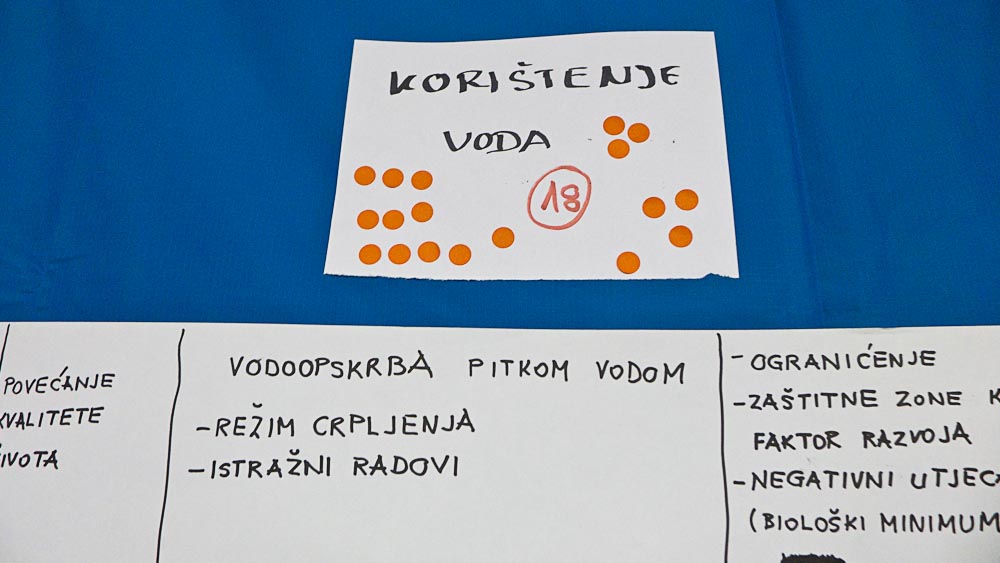 KORIŠTENJE
VODA
18
POVEĆANJE
KVALITETE
ŽIVOTA
VODOOPSKRBA PITKOM VODOM
-REŽIM CRPLJENJA
-ISTRAŽNI RADOVI
- OGRANIĆENJE
-ZAŠTITNE ZONE K
FAKTOR RAZVOJA
-NEGATIVNI UTJEC
(BIOLOŠKI MINIMUM